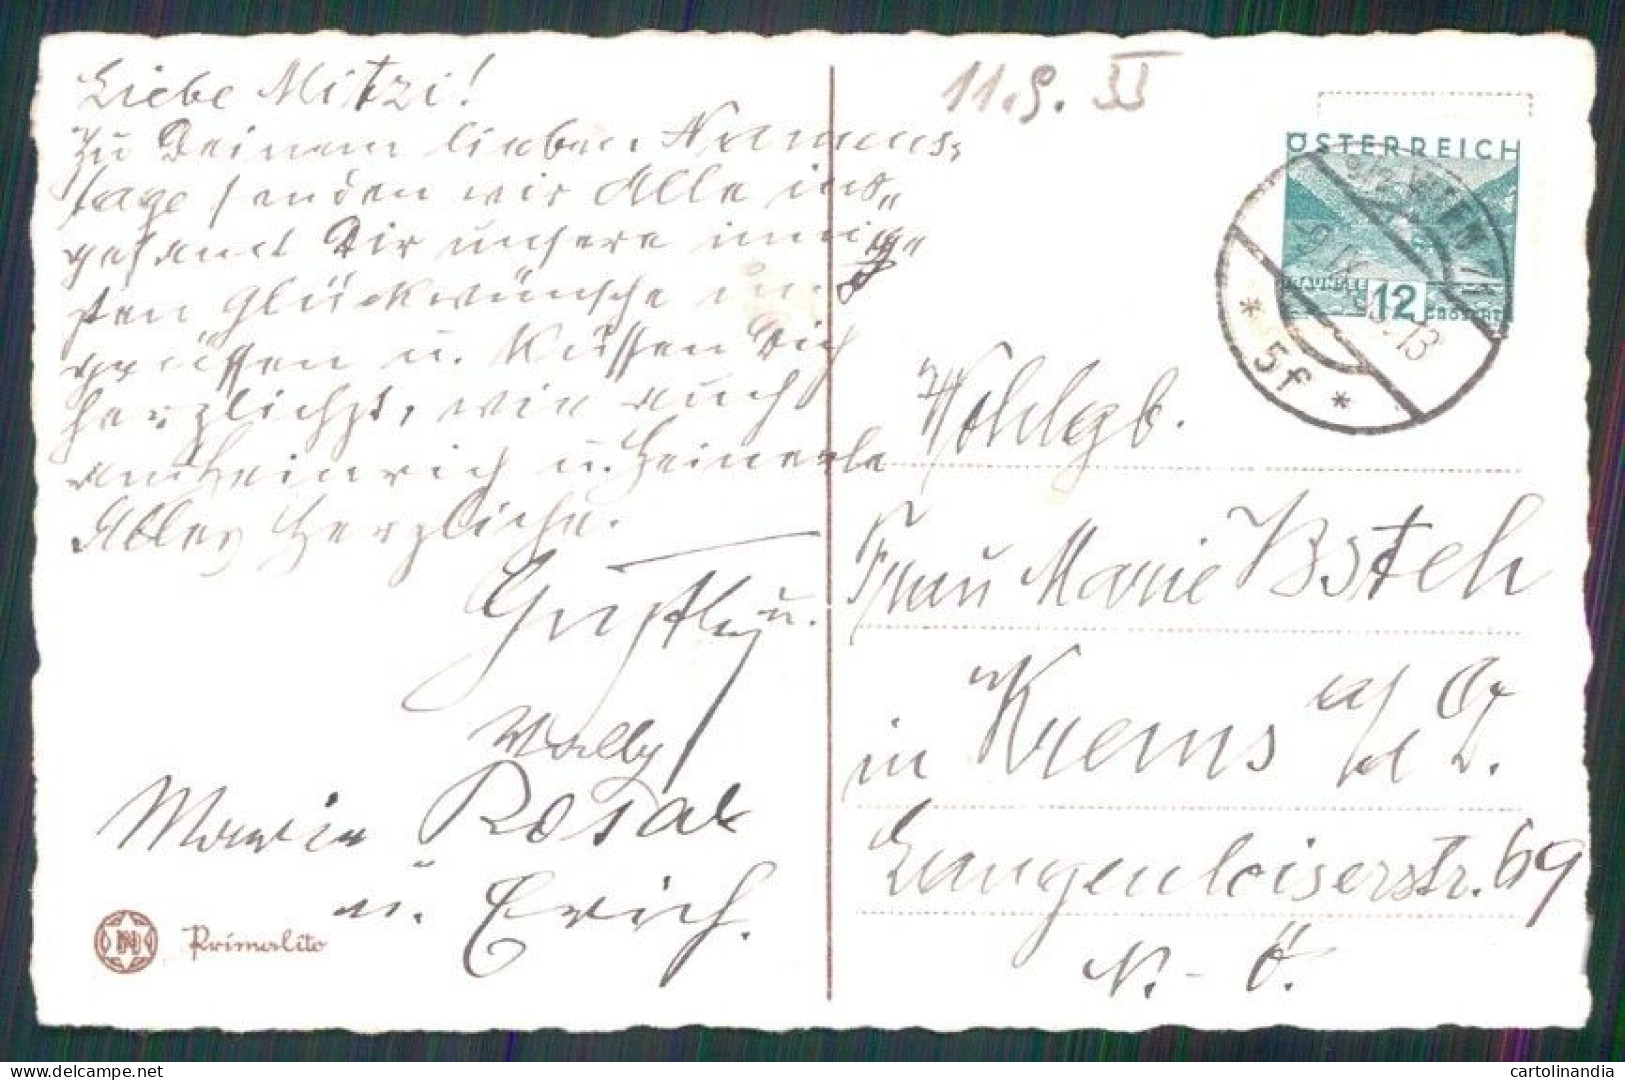 Liebe Mitzi!
Zu Deinem lieben Namens-
tage senden wir Alle ins-
gesamt Dir unsere innig-
sten Glückwünsche und
grüssen u. Küssen Dich
herzlichst, wie auch
Heinrich u. Heinerle
Alles Herzliche.
Gustl u.
Wally
Maria Rosal
u. Erich.
Primalito
11.9.33
ÖSTERREICH
12 GROSCHEN
WIEN
* 5f *
Wohlgb.
Frau Marie
in Krems a/
d D.
Langenloiserstr. 69
N.-Ö.
cartolinandia